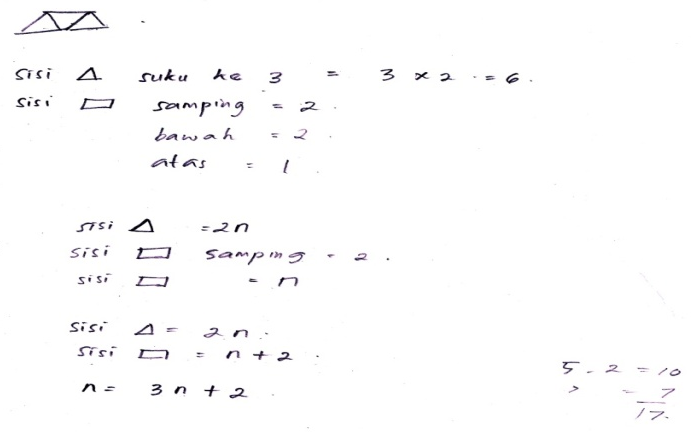 sisi △ suku ke 3 = 3 x 2 = 6.
sisi ▭ samping = 2.
bawah = 2.
atas = 1.
sisi △ = 2n
sisi ▭ samping = 2.
sisi ▭ = n
sisi △ = 2n.
sisi ▭ = n + 2.
n = 3n + 2.
5 . 2 = 10
> - 7
17.